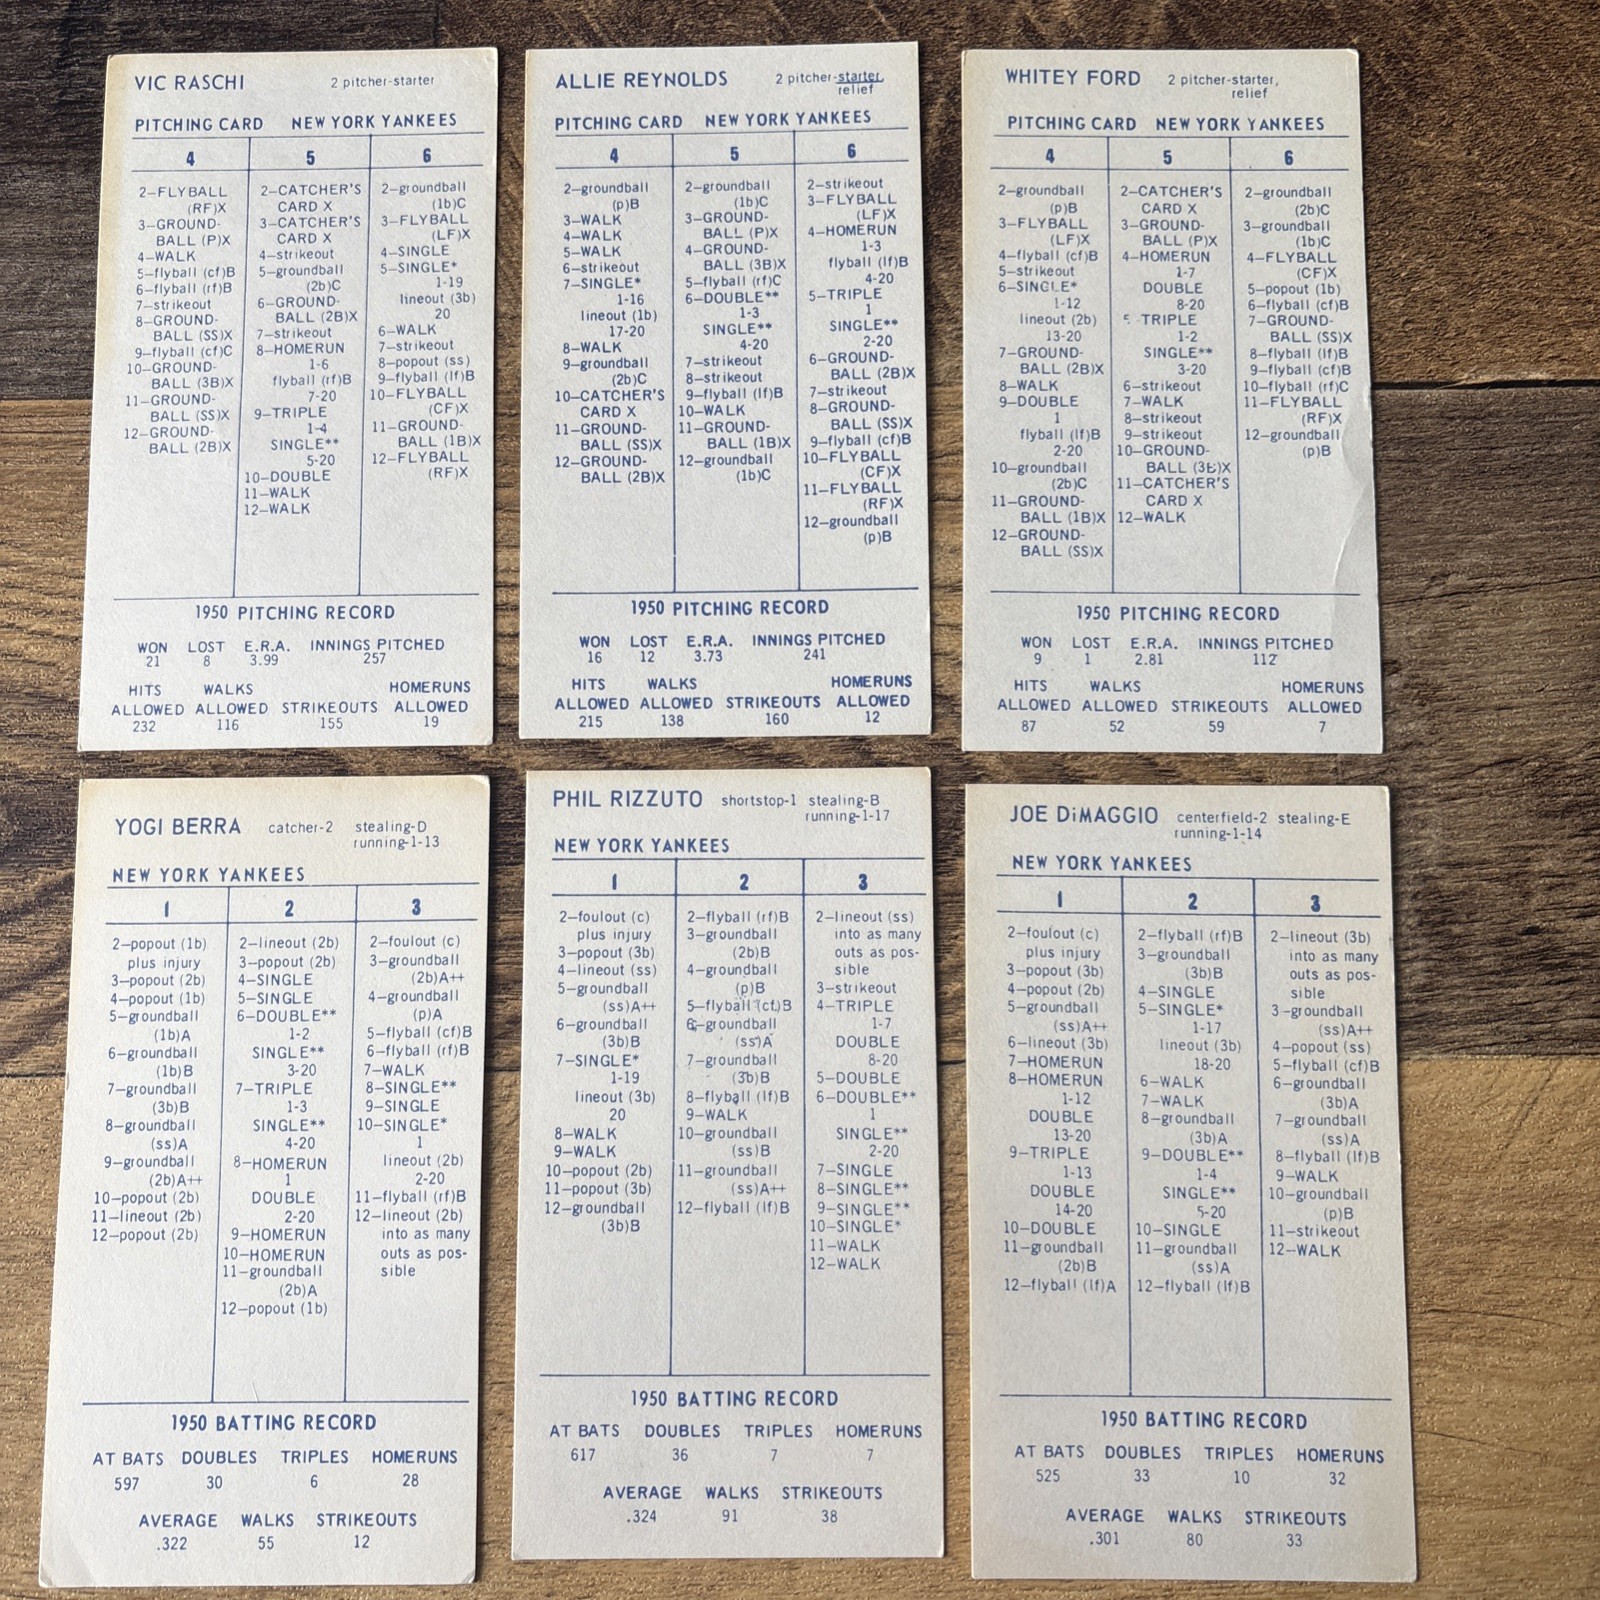 VIC RASCHI 2 pitcher-starter
PITCHING CARD NEW YORK YANKEES
4 5 6
2—FLYBALL
(RF)X
3—GROUND-
BALL (P)X
4—WALK
5—flyball (cf)B
6—flyball (rf)B
7—strikeout
8—GROUND-
BALL (SS)X
9—flyball (cf)C
10—GROUND-
BALL (3B)X
11—GROUND-
BALL (SS)X
12—GROUND-
BALL (2B)X
2—CATCHER'S
CARD X
3—CATCHER'S
CARD X
4—strikeout
5—groundball
(2b)C
6—GROUND-
BALL (2B)X
7—strikeout
8—HOMERUN
1-6
flyball (rf)B
7-20
9—TRIPLE
1-4
SINGLE**
5-20
10—DOUBLE
11—WALK
12—WALK
2—groundball
(1b)C
3—FLYBALL
(LF)X
4—SINGLE
5—SINGLE*
1-19
lineout (3b)
20
6—WALK
7—strikeout
8—popout (ss)
9—flyball (lf)B
10—FLYBALL
(CF)X
11—GROUND-
BALL (1B)X
12—FLYBALL
(RF)X
1950 PITCHING RECORD
WON LOST E.R.A. INNINGS PITCHED
21 8 3.99 257
HITS WALKS HOMERUNS
ALLOWED ALLOWED STRIKEOUTS ALLOWED
232 116 155 19
ALLIE REYNOLDS 2 pitcher-starter,
relief
PITCHING CARD NEW YORK YANKEES
4 5 6
2—groundball
(p)B
3—WALK
4—WALK
5—WALK
6—strikeout
7—SINGLE*
1-16
lineout (1b)
17-20
8—WALK
9—groundball
(2b)C
10—CATCHER'S
CARD X
11—GROUND-
BALL (SS)X
12—GROUND-
BALL (2B)X
2—groundball
(1b)C
3—GROUND-
BALL (P)X
4—GROUND-
BALL (3B)X
5—flyball (rf)C
6—DOUBLE**
1-3
SINGLE**
4-20
7—strikeout
8—strikeout
9—flyball (lf)B
10—WALK
11—GROUND-
BALL (1B)X
12—groundball
(1b)C
2—strikeout
3—FLYBALL
(LF)X
4—HOMERUN
1-3
flyball (lf)B
4-20
5—TRIPLE
1
SINGLE**
2-20
6—GROUND-
BALL (2B)X
7—strikeout
8—GROUND-
BALL (SS)X
9—flyball (cf)B
10—FLYBALL
(CF)X
11—FLYBALL
(RF)X
12—groundball
(p)B
1950 PITCHING RECORD
WON LOST E.R.A. INNINGS PITCHED
16 12 3.73 241
HITS WALKS HOMERUNS
ALLOWED ALLOWED STRIKEOUTS ALLOWED
215 138 160 12
WHITEY FORD 2 pitcher-starter,
relief
PITCHING CARD NEW YORK YANKEES
4 5 6
2—groundball
(p)B
3—FLYBALL
(LF)X
4—flyball (cf)B
5—strikeout
6—SINGLE*
1-12
lineout (2b)
13-20
7—GROUND-
BALL (2B)X
8—WALK
9—DOUBLE
1
flyball (lf)B
2-20
10—groundball
(2b)C
11—GROUND-
BALL (1B)X
12—GROUND-
BALL (SS)X
2—CATCHER'S
CARD X
3—GROUND-
BALL (P)X
4—HOMERUN
1-7
DOUBLE
8-20
5—TRIPLE
1-2
SINGLE**
3-20
6—strikeout
7—WALK
8—strikeout
9—strikeout
10—GROUND-
BALL (3B)X
11—CATCHER'S
CARD X
12—WALK
2—groundball
(2b)C
3—groundball
(1b)C
4—FLYBALL
(CF)X
5—popout (1b)
6—flyball (cf)B
7—GROUND-
BALL (SS)X
8—flyball (lf)B
9—flyball (cf)B
10—flyball (rf)C
11—FLYBALL
(RF)X
12—groundball
(p)B
1950 PITCHING RECORD
WON LOST E.R.A. INNINGS PITCHED
9 1 2.81 112
HITS WALKS HOMERUNS
ALLOWED ALLOWED STRIKEOUTS ALLOWED
87 52 59 7
YOGI BERRA catcher-2 stealing-D
running-1-13
NEW YORK YANKEES
1 2 3
2—popout (1b)
plus injury
3—popout (2b)
4—popout (1b)
5—groundball
(1b)A
6—groundball
(1b)B
7—groundball
(3b)B
8—groundball
(ss)A
9—groundball
(2b)A++
10—popout (2b)
11—lineout (2b)
12—popout (2b)
2—lineout (2b)
3—popout (2b)
4—SINGLE
5—SINGLE
6—DOUBLE**
1-2
SINGLE**
3-20
7—TRIPLE
1-3
SINGLE**
4-20
8—HOMERUN
1
DOUBLE
2-20
9—HOMERUN
10—HOMERUN
11—groundball
(2b)A
12—popout (1b)
2—foulout (c)
3—groundball
(2b)A++
4—groundball
(p)A
5—flyball (cf)B
6—flyball (rf)B
7—WALK
8—SINGLE**
9—SINGLE
10—SINGLE*
1
lineout (2b)
2-20
11—flyball (rf)B
12—lineout (2b)
into as many
outs as pos-
sible
1950 BATTING RECORD
AT BATS DOUBLES TRIPLES HOMERUNS
597 30 6 28
AVERAGE WALKS STRIKEOUTS
.322 55 12
PHIL RIZZUTO shortstop-1 stealing-B
running-1-17
NEW YORK YANKEES
1 2 3
2—foulout (c)
plus injury
3—popout (3b)
4—lineout (ss)
5—groundball
(ss)A++
6—groundball
(3b)B
7—SINGLE*
1-19
lineout (3b)
20
8—WALK
9—WALK
10—popout (2b)
11—popout (3b)
12—groundball
(3b)B
2—flyball (rf)B
3—groundball
(2b)B
4—groundball
(p)B
5—flyball (cf)B
6—groundball
(ss)A
7—groundball
(3b)B
8—flyball (lf)B
9—WALK
10—groundball
(ss)B
11—groundball
(ss)A++
12—flyball (lf)B
2—lineout (ss)
into as many
outs as pos-
sible
3—strikeout
4—TRIPLE
1-7
DOUBLE
8-20
5—DOUBLE
6—DOUBLE**
1
SINGLE**
2-20
7—SINGLE
8—SINGLE**
9—SINGLE**
10—SINGLE*
11—WALK
12—WALK
1950 BATTING RECORD
AT BATS DOUBLES TRIPLES HOMERUNS
617 36 7 7
AVERAGE WALKS STRIKEOUTS
.324 91 38
JOE DiMAGGIO centerfield-2 stealing-E
running-1-14
NEW YORK YANKEES
1 2 3
2—foulout (c)
plus injury
3—popout (3b)
4—popout (2b)
5—groundball
(ss)A++
6—lineout (3b)
7—HOMERUN
8—HOMERUN
1-12
DOUBLE
13-20
9—TRIPLE
1-13
DOUBLE
14-20
10—DOUBLE
11—groundball
(2b)B
12—flyball (lf)A
2—flyball (rf)B
3—groundball
(3b)B
4—SINGLE
5—SINGLE*
1-17
lineout (3b)
18-20
6—WALK
7—WALK
8—groundball
(3b)A
9—DOUBLE**
1-4
SINGLE**
5-20
10—SINGLE
11—groundball
(ss)A
12—flyball (lf)B
2—lineout (3b)
into as many
outs as pos-
sible
3—groundball
(ss)A++
4—popout (ss)
5—flyball (cf)B
6—groundball
(3b)A
7—groundball
(ss)A
8—flyball (lf)B
9—WALK
10—groundball
(p)B
11—strikeout
12—WALK
1950 BATTING RECORD
AT BATS DOUBLES TRIPLES HOMERUNS
525 33 10 32
AVERAGE WALKS STRIKEOUTS
.301 80 33